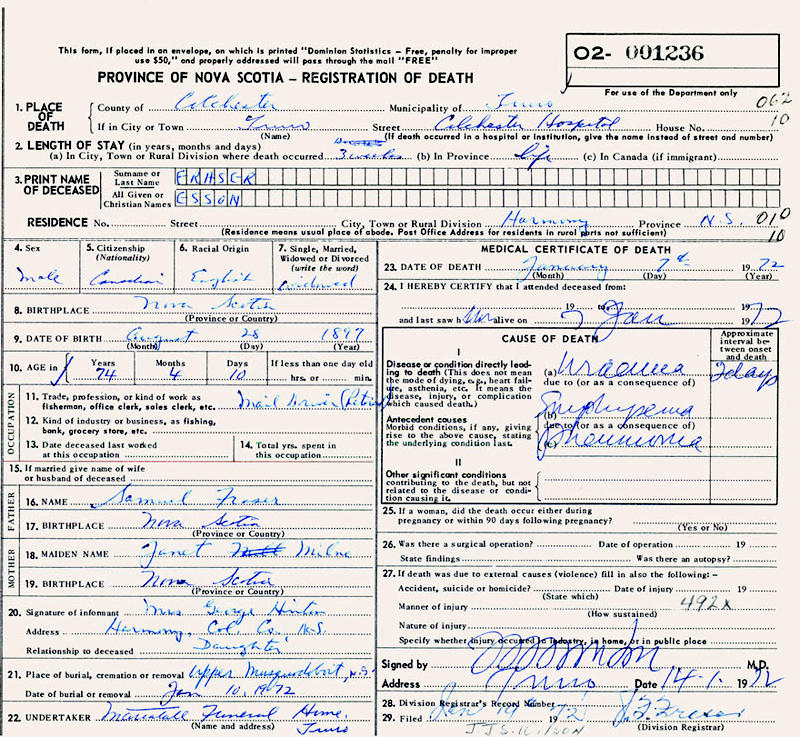 This form, if placed in an envelope, on which is printed "Dominion Statistics – Free, penalty for improper
use $50," and properly addressed will pass through the mail "FREE"
PROVINCE OF NOVA SCOTIA – REGISTRATION OF DEATH
O2- 001236
For use of the Department only
1. PLACE OF DEATH
County of Colchester Municipality of Truro 062
If in City or Town Truro Street Colchester Hospital House No. 10
(Name) (If death occurred in a hospital or institution, give the name instead of street and number)
2. LENGTH OF STAY (in years, months and days)
(a) In City, Town or Rural Division where death occurred 3 weeks (b) In Province life (c) In Canada (if immigrant)
3. PRINT NAME OF DECEASED
Surname or Last Name
All Given or Christian Names
RESIDENCE No. Street City, Town or Rural Division Harmony Province N.S. 010
(Residence means usual place of abode. Post Office Address for residents in rural parts not sufficient) 10
4. Sex
Male
5. Citizenship
(Nationality)
Canadian
6. Racial Origin
English
7. Single, Married, Widowed or Divorced
(write the word)
Widowed
8. BIRTHPLACE Nova Scotia
(Province or Country)
9. DATE OF BIRTH August 28 1897
(Month) (Day) (Year)
10. AGE in Years Months Days If less than one day old
74 4 10 hrs. or min.
OCCUPATION
11. Trade, profession, or kind of work as
fisherman, office clerk, sales clerk, etc. Mail Driver (Retired
12. Kind of industry or business, as fishing,
bank, grocery store, etc.
13. Date deceased last worked
at this occupation
14. Total yrs. spent in
this occupation
15. If married give name of wife
or husband of deceased
FATHER
16. NAME Samuel Fraser
17. BIRTHPLACE Nova Scotia
(Province or Country)
MOTHER
18. MAIDEN NAME Janet Milne
19. BIRTHPLACE Nova Scotia
(Province or Country)
20. Signature of informant Mrs George Hinton
Address Harmony, Col. Co. N.S.
Relationship to deceased Daughter
21. Place of burial, cremation or removal Upper Musquodoboit, N.S.
Date of burial or removal Jan 10, 1972
22. UNDERTAKER Funeral Home,
(Name and address) Truro
MEDICAL CERTIFICATE OF DEATH
23. DATE OF DEATH January 7th 1972
(Month) (Day) (Year)
24. I HEREBY CERTIFY that I attended deceased from:
19 to 19
and last saw him alive on 7 Jan 1972
CAUSE OF DEATH
Approximate interval between onset and death
I
Disease or condition directly leading
to death (This does not mean
the mode of dying, e.g., heart failure,
asthenia, etc. It means the
disease, injury, or complication
which caused death.)
(a) Uraemia 2 days
due to (or as a consequence of)
(b) Emphysema
Antecedent causes
Morbid conditions, if any, giving
rise to the above cause, stating
the underlying condition last.
due to (or as a consequence of)
(c) Pneumonia
II
Other significant conditions
contributing to the death, but not
related to the disease or condition
causing it.
25. If a woman, did the death occur either during
pregnancy or within 90 days following pregnancy?
(Yes or No)
26. Was there a surgical operation? Date of operation 19
State findings Was there an autopsy?
27. If death was due to external causes (violence) fill in also the following: –
Accident, suicide or homicide? Date of injury 19
(State which)
Manner of injury 492x
(How sustained)
Nature of injury
Specify whether injury occurred in industry, in home, or in public place
Signed by M.D.
Address Truro Date 14-1-1972
28. Division Registrar's Record Number
29. Filed Jan 14 1972
(Division Registrar)